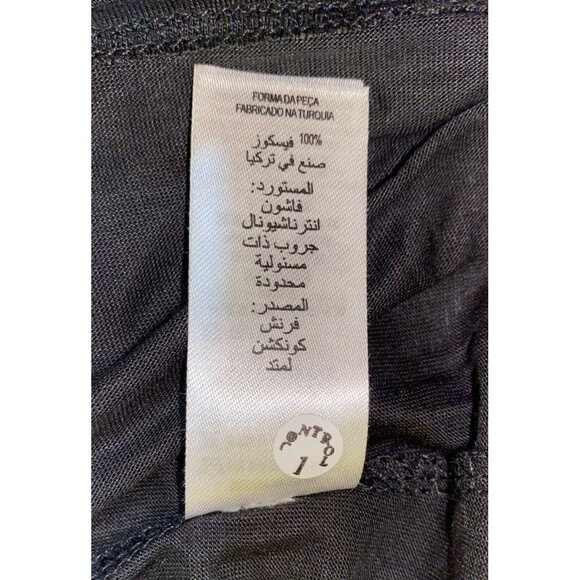 FORMA DA PEÇA
FABRICADO NA TURQUIA
100% فيسكوز
صنع في تركيا
المستورد:
فاشون
انترناشيونال
جروب ذات
مسئولية
محدودة
المصدر:
فرنش
كونكشن
لمتد
CONTROL
1